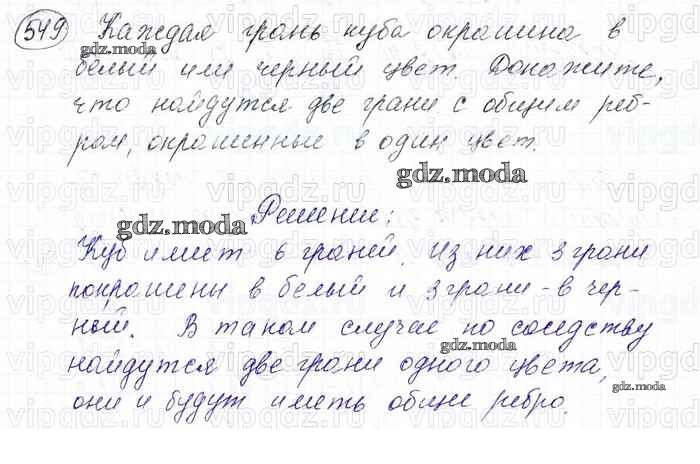 549 Каждая грань куба окрашина в
белый или черный цвет. Докажите,
что найдутся две грани с общим реб-
ром, окрашенные в один цвет.
Решение:
Куб имеет 6 граней. Из них 3 грани
покрашены в белый и 3 грани - в чер-
ный. В таком случае по соседству
найдутся две грани одного цвета,
они и будут иметь общее ребро.
gdz.moda
gdz.moda
gdz.moda
gdz.moda
gdz.moda